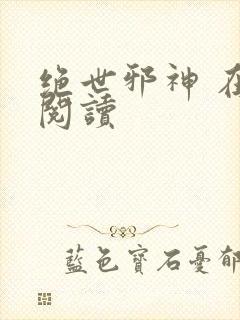 绝世邪神 在
閱讀
藍色寶石憂郁